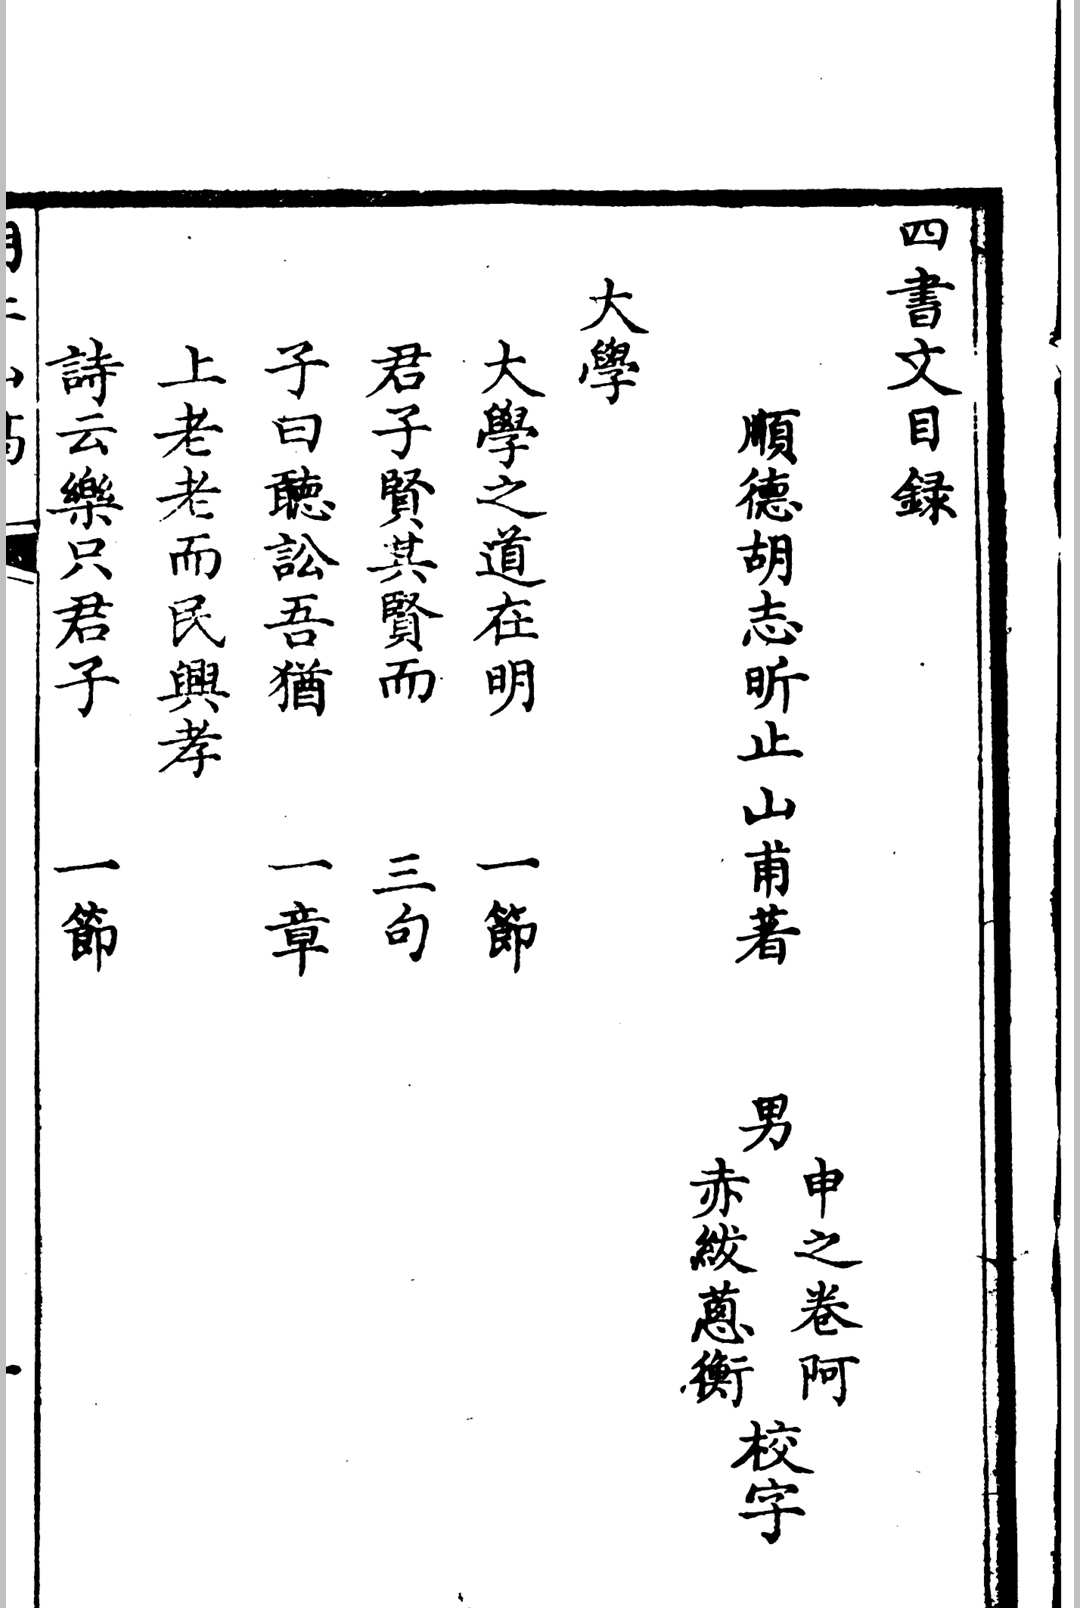 四書文目録
順德胡志昕止山甫著
男
申之卷阿
赤紱蔥衡
校字
大學
大學之道在明　一節
君子賢其賢而　三句
子曰聽訟吾猶　一章
上老老而民興孝
詩云樂只君子　一節